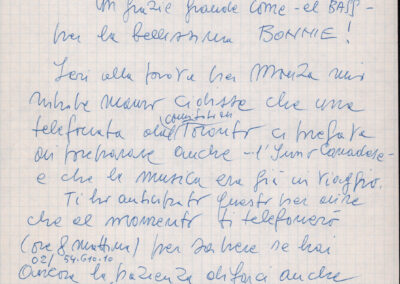 Un grazie grande come - el BASS -
per la bellissima BONNIE!
Ieri alla prova per Monza
Mauro ci disse che una
telefonata Toronto ci pregava
di preparare anche - l'Inno Canadese -
e che la musica era già in viaggio.
Ti ho anticipato questo per dire
che al momento ti telefonerò
(ore 8 mattina) per sapere se hai
02/54.610.10
ancora la pazienza di farci anche